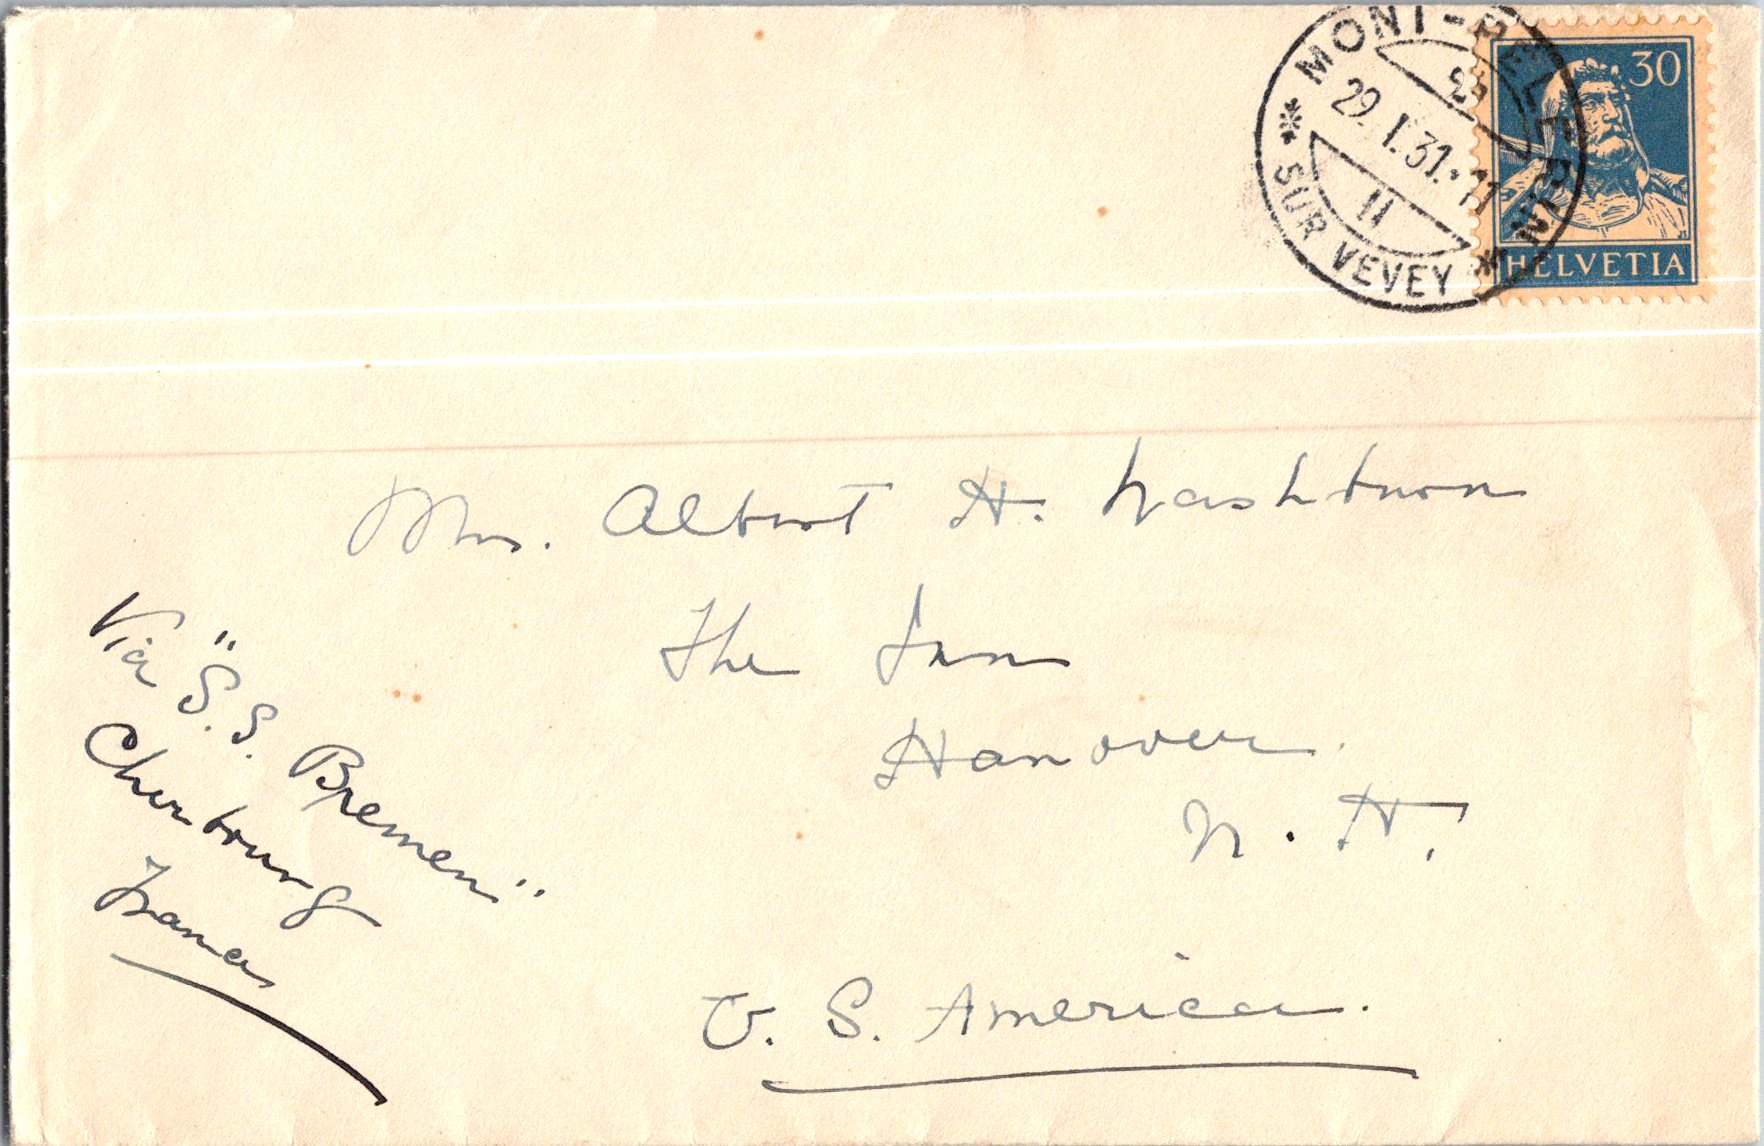 MONT-PÈLERIN
29.I.31.-11
II
SUR VEVEY
30
HELVETIA
Mrs. Albert H. Washburn
The Inn
Hanover.
N. H.
U. S. America.
Via "S.S. Bremen"
Cherbourg
France